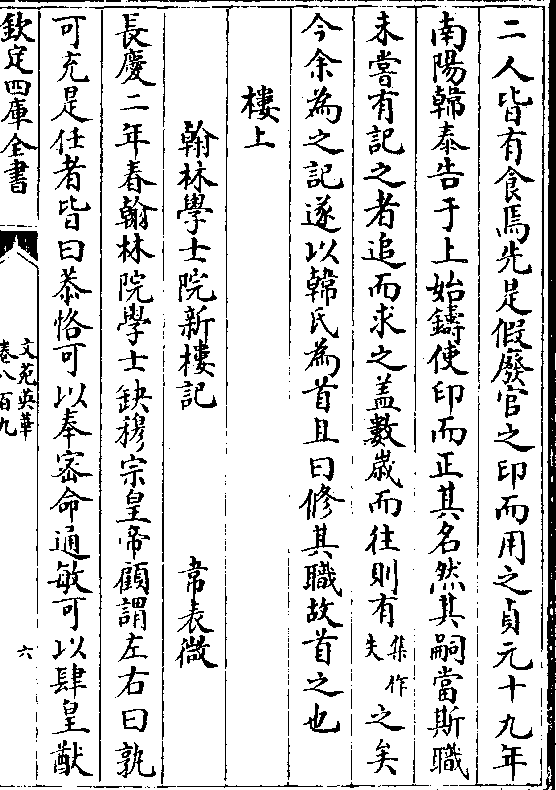 二人皆有食焉先是假廢官之印而用之貞元十九年
南陽韓泰告于上始鑄使印而正其名然其嗣當斯職
未嘗有記之者追而求之盖數歳而往則有集作失之矣
今余為之記遂以韓氏為首且曰修其職故首之也
樓上
翰林學士院新樓記 韋表微
長慶二年春翰林院學士缺穆宗皇帝顧謂左右曰孰
可充是任者皆曰恭恪可以奉密命通敏可以肆皇猷
欽定四庫全書
文苑英華
卷八百九
六